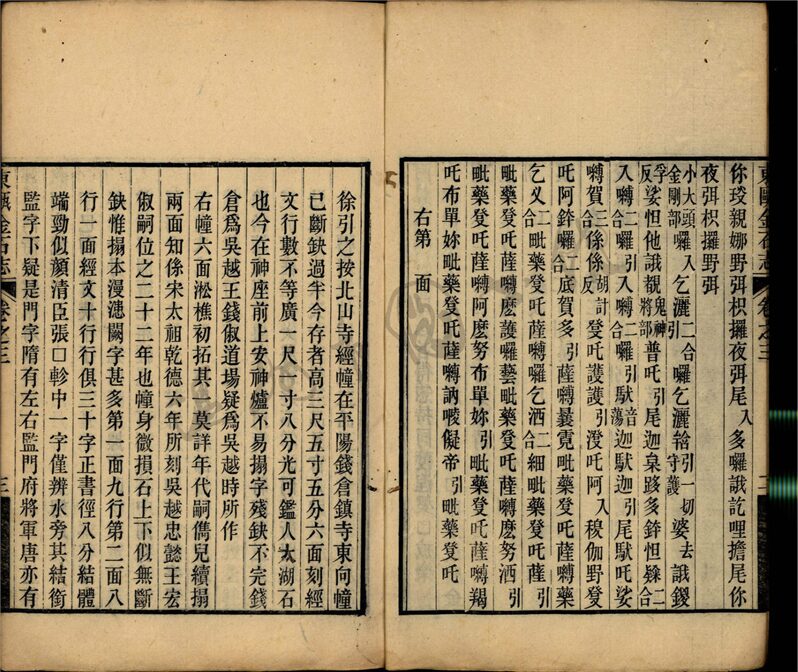 東甌金石志 卷之三 二
你琰親娜野弭枳攞夜弭尾入多囉誐訖哩擔尾你
夜弭枳攞野弭
小大頭囉入乞灑二合囉乞灑引一切婆去誐鑁
金剛部 引 守護
孚娑怛他誐覩鬼神普吒引尾迦路多鉾怛二
反 將部 合
入嚩二合囉引入嚩二合囉引馱音蕩迦馱迦引尾馱吒娑
嚩賀三係係胡計發吒護護引澄吒阿入稅伽野發
合 反
吒阿鉾囉二合底賀多引薩嚩曇霓毗藥發吒薩嚩藥
乞乂二合毗藥發吒薩嚩囉乞洒二合細毗藥發吒薩引
毗藥發吒薩嚩麽護囉藝毗藥發吒薩嚩麽努洒引
毗藥發吒薩嚩阿麽努布單妳引毗藥發吒薩嚩羯
吒布單妳毗藥發吒薩嚩訥㘄儗帝引毗藥發吒
右第 面
徐引之按北山寺經幢在平陽錢倉鎮寺東向幢
已斷缺過半今存者高三尺五寸五分六面刻經
文行數不等廣一尺 寸八分光可鑑人太湖石
也今在神座前上安神爐不易搨字殘缺不完錢
倉爲吳越王錢俶道場疑爲吳越時所作
右幢六面淞樵初拓其一莫詳年代嗣儁兒續搨
兩面知係宋太祖乾德六年所刻吳越忠懿王宏
俶嗣位之二十二年也幢身微損石上下似無斷
缺惟搨本漫漶闕字甚多第一面九行第二面八
行一面經文十行行俱三十字正書徑八分結體
端勁似顔清臣張口軫中一字僅辨水旁其結銜
監字下疑是門字隋有左右監門府將軍唐亦有
東甌金石志 卷之三 三